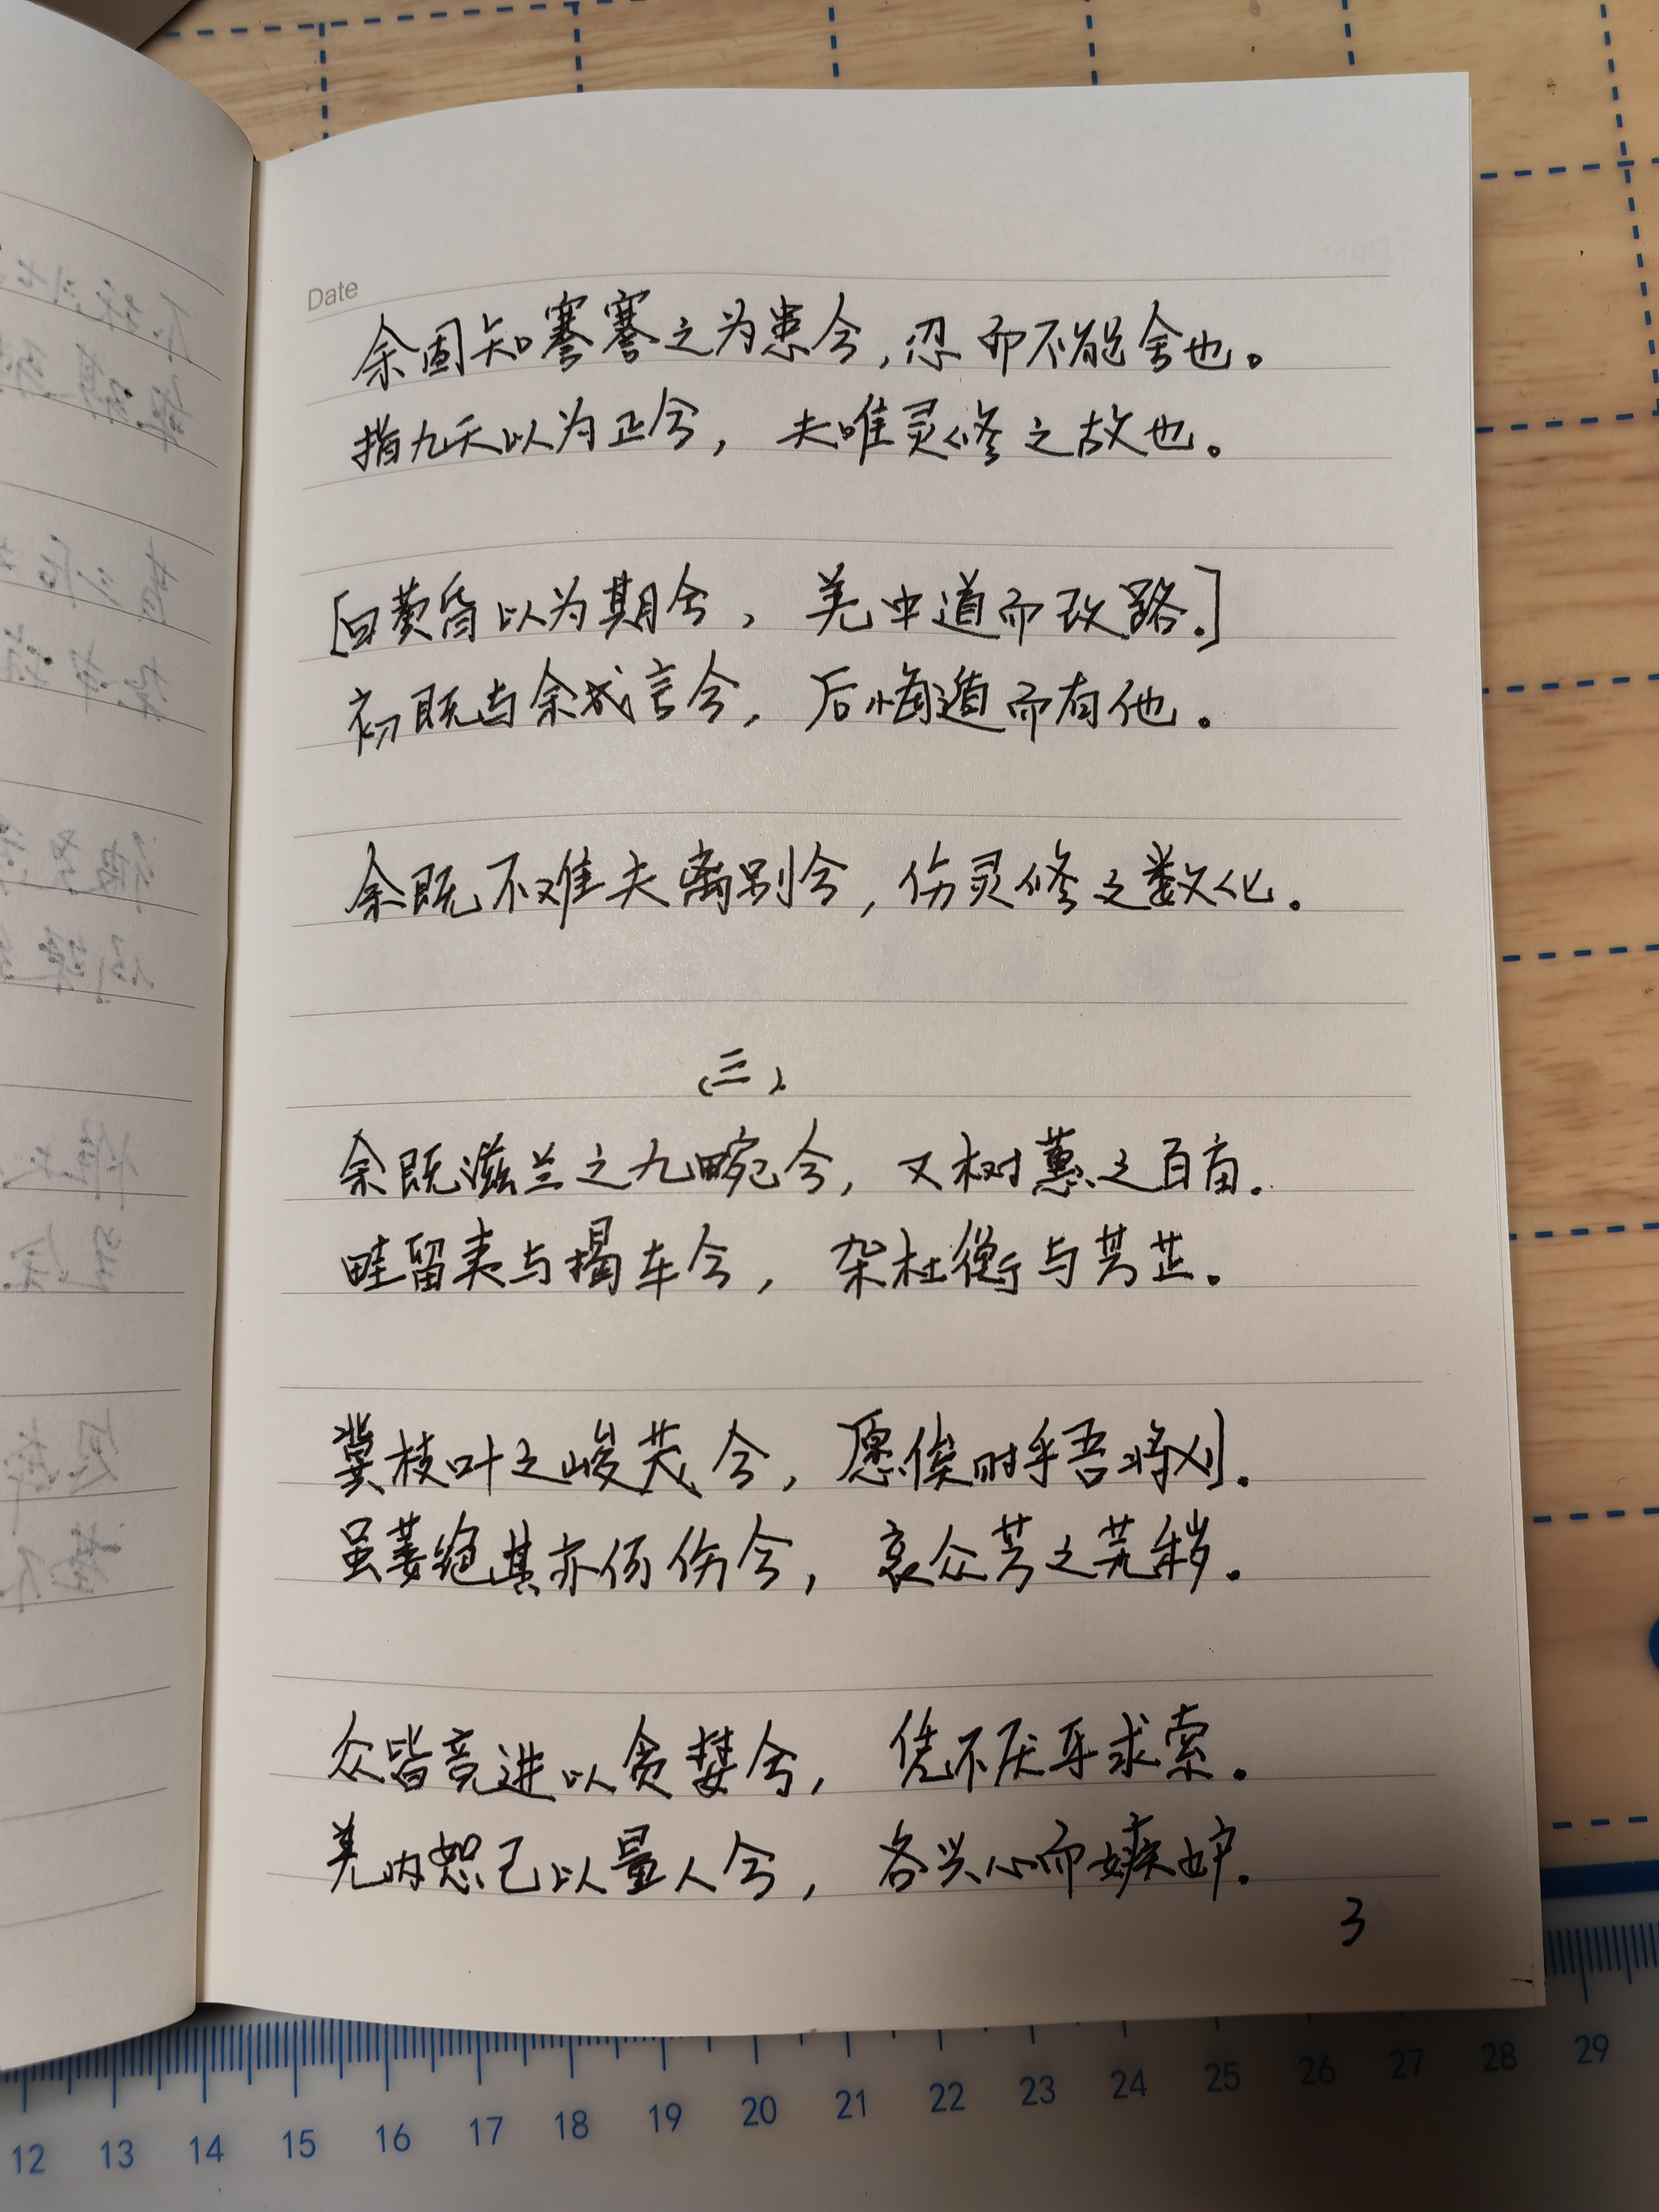 Date
余固知謇謇之为患兮,忍而不能舍也。
指九天以为正兮,夫唯灵修之故也。
[曰黄昏以为期兮,羌中道而改路。]
初既与余成言兮,后悔遁而有他。
余既不难夫离别兮,伤灵修之数化。
(三)
余既滋兰之九畹兮,又树蕙之百亩。
畦留夷与揭车兮,杂杜衡与芳芷。
冀枝叶之峻茂兮,愿俟时乎吾将刈。
虽萎绝其亦何伤兮,哀众芳之芜秽。
众皆竞进以贪婪兮,凭不厌乎求索。
羌内恕己以量人兮,各兴心而嫉妒。
3
12 13 14 15 16 17 18 19 20 21 22 23 24 25 26 27 28 29